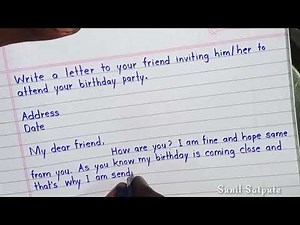 Write a letter to your friend inviting him/her to
attend your birthday party.
Address
Date
My dear friend,
How are you? I am fine and hope same
from you. As you know my birthday is coming close and
that's why I am send
Sunil Satpute